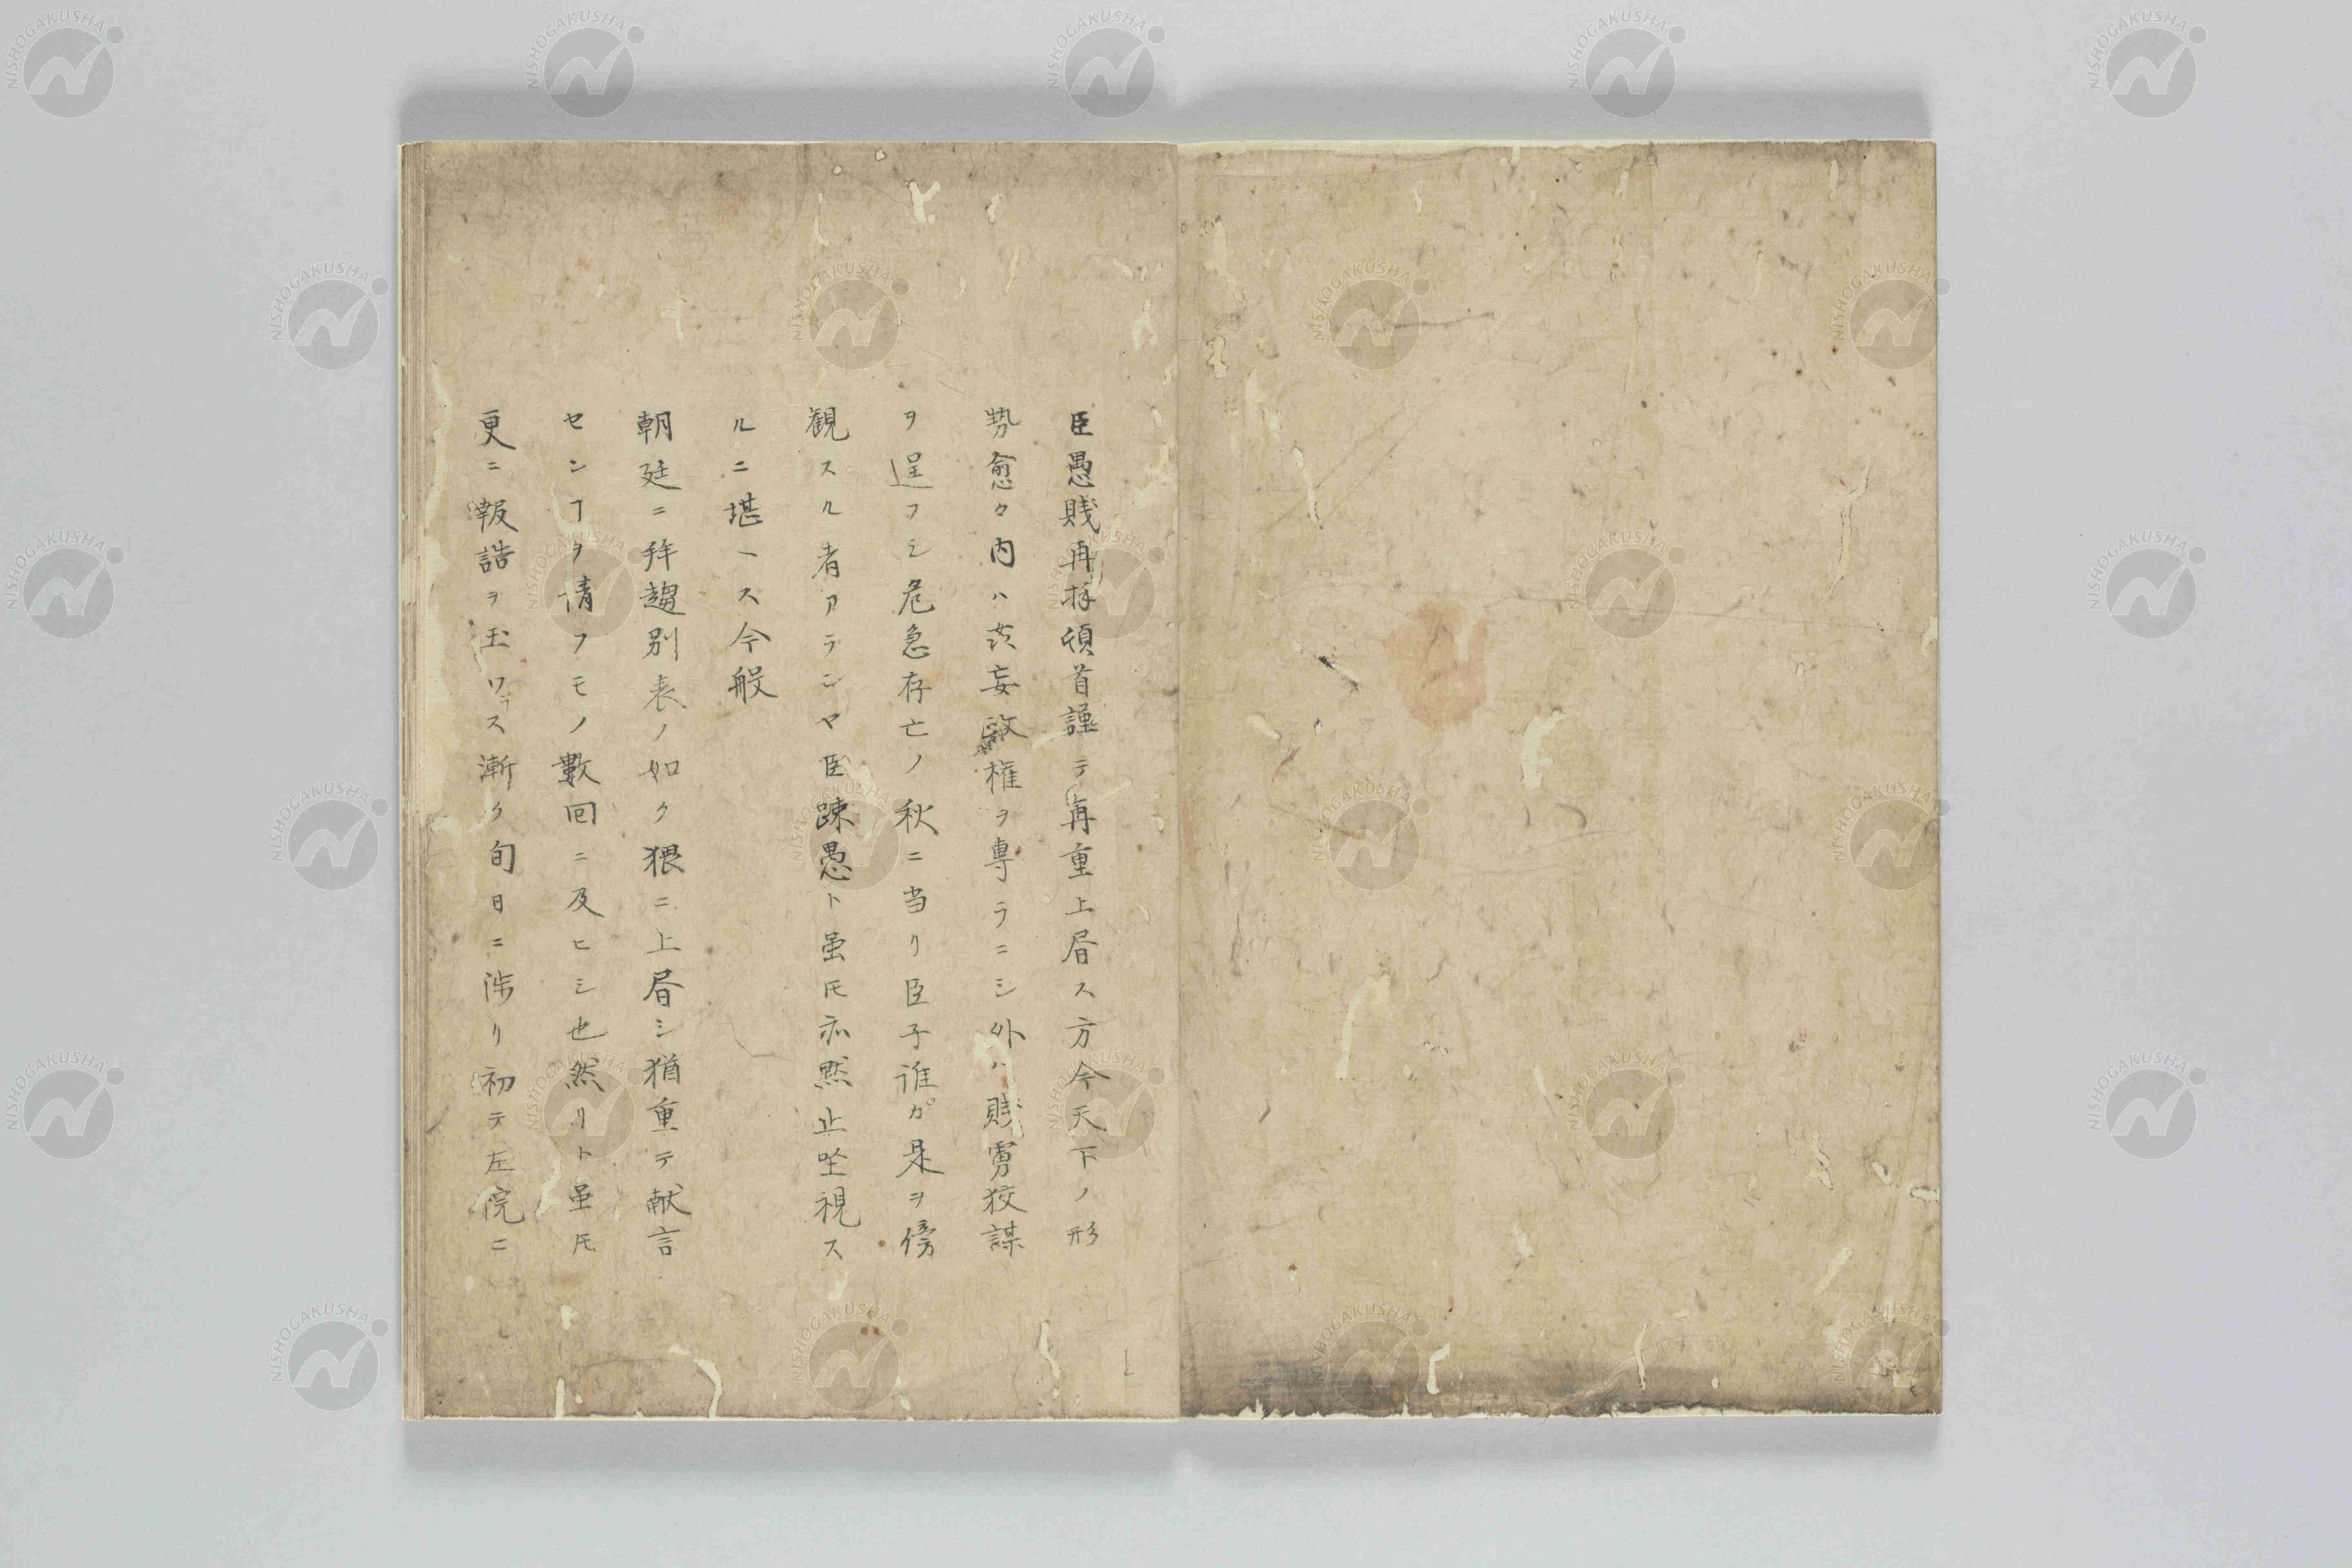 臣愚賎再拝頓首謹テ再重上屠ス方今天下ノ形
勢愈々内ハ妄 権ヲ専ラニシ外ハ賎虜狡謀
ヲ逞フシ危急存亡ノ秋ニ当リ臣子誰カ是ヲ傍
観スル者アランヤ臣疎愚ト虽㐧亦黙止坐視ス
ルニ堪ヘス今般
朝廷ニ拝趨別表ノ如ク猥ニ上屠シ猶重テ献言
センヿヲ請フモノ數回ニ及ヒシ也然リト虽㐧
更ニ報誥ヲ玉ワラス漸ク旬日ニ渉リ初テ左院ニ
NISHOGAKUSHA